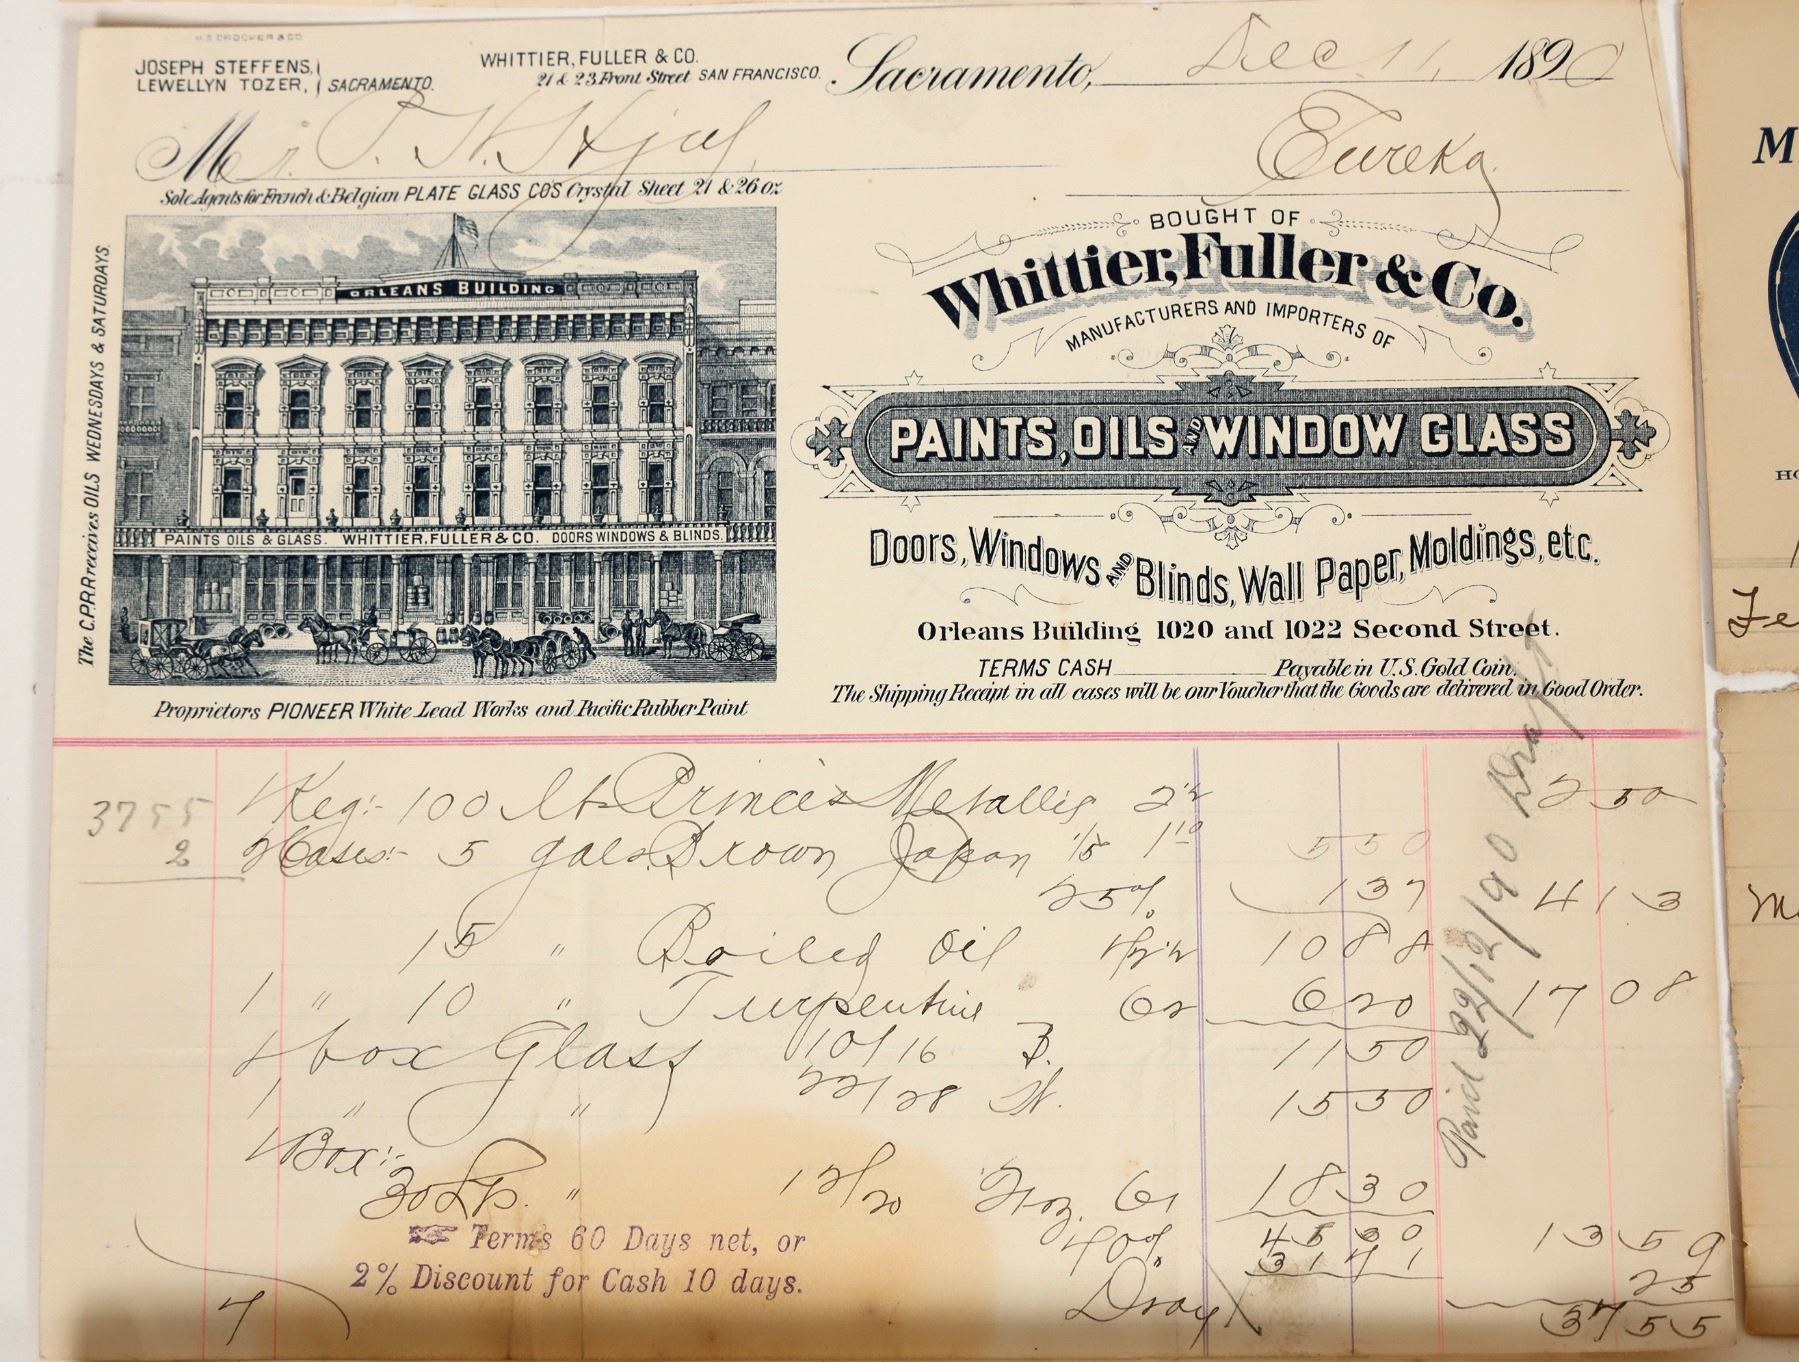 H.S. CROCKER & CO.
JOSEPH STEFFENS,
LEWELLYN TOZER, SACRAMENTO.
WHITTIER, FULLER & CO.
21 & 23 Front Street SAN FRANCISCO.
Sacramento, Dec 11, 1890
Mr. P. H.
Eureka
Sole Agents for French & Belgian PLATE GLASS CO'S Crystal Sheet 21 & 26 oz
The C.P.R.R receives OILS WEDNESDAYS & SATURDAYS.
ORLEANS BUILDING
PAINTS OILS & GLASS. WHITTIER, FULLER & CO. DOORS WINDOWS & BLINDS.
Proprietors PIONEER White Lead Works and Pacific Rubber Paint
BOUGHT OF
Whittier, Fuller & Co.
MANUFACTURERS AND IMPORTERS OF
PAINTS, OILS AND WINDOW GLASS
Doors, Windows AND Blinds, Wall Paper, Moldings, etc.
Orleans Building 1020 and 1022 Second Street.
TERMS CASH Payable in U.S. Gold Coin.
The Shipping Receipt in all cases will be our Voucher that the Goods are delivered in Good Order.
3755
2
1 Keg:- 100 lbs Princes Metallic 2½ 2 50
2 Cases:- 5 gals. Brown Japan 1/5 1 10 5 50
25% 1 37 4 13
15 " Boiled Oil 10 88
1 " 10 " Turpentine 62 6 20 17 08
1 box Glass 10/16 11 50
1 " " 22/28 15 50
1 Box:-
30 Lts. " 12/20 21 oz. 61 18 30
45 30
40% 31 71 13 59
Dray 25
37 55
Terms 60 Days net, or
2% Discount for Cash 10 days.
7
Paid 22/12/90 Draft
M
HO
Fe
M